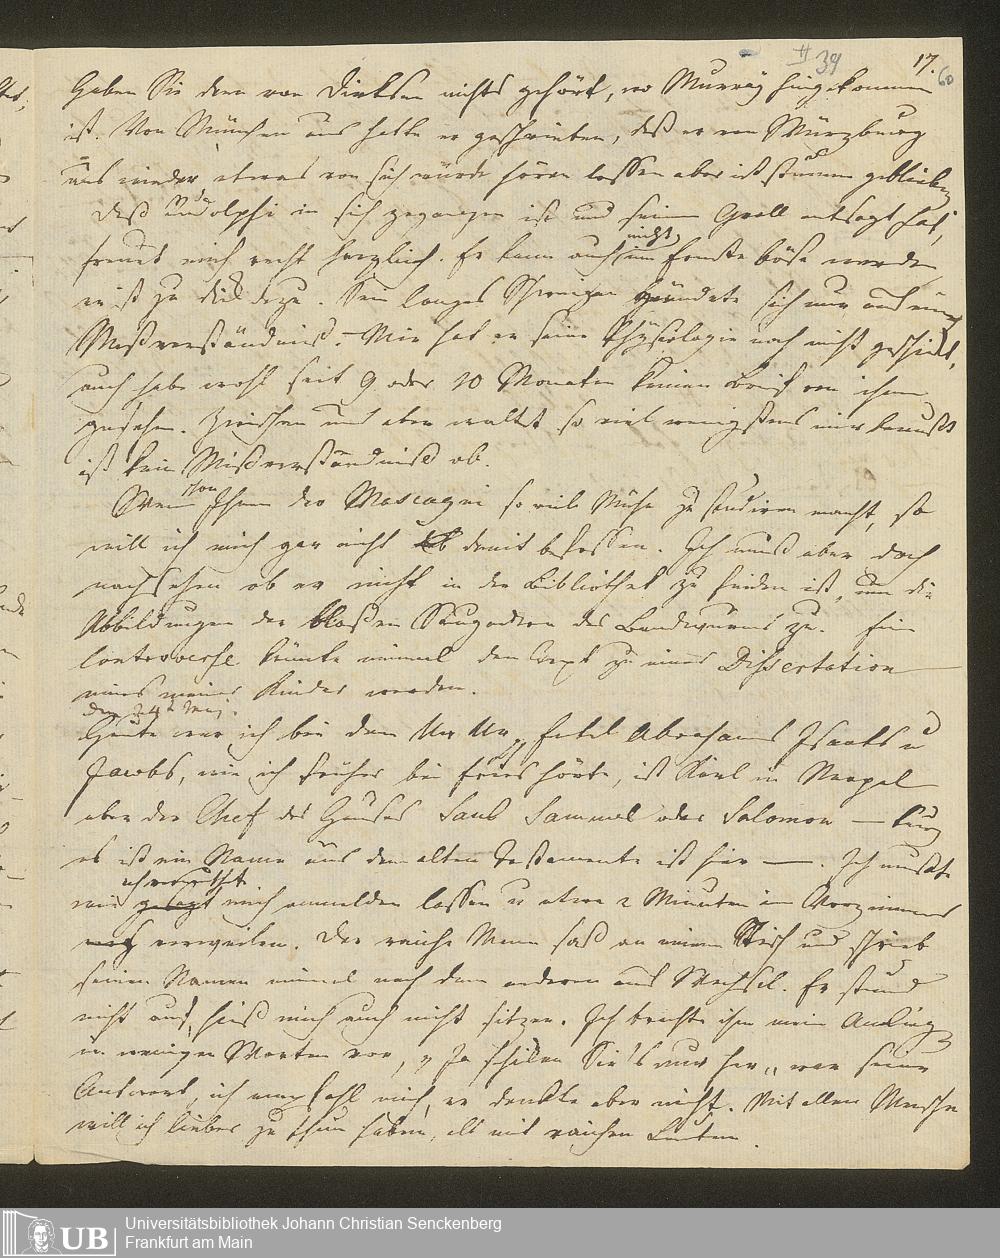 II 39 17.
60
Haben Sie denn von Dirksen nichts gehört, wo Murray hingekommen
ist. Von München aus hatte er geschrieben, daß er von Würzburg
aus wieder etwas von sich würde hören lassen aber ist stumm geblieben
Daß Rudolphi in sich gegangen ist und seinem Groll entsagt hat,
freuet mich recht herzlich. Er kann auch nicht im Ernste böse werden
er ist zu dick dazu. Sein langes Schweigen gründete sich nur auf ein
Mißverständniß. – Mir hat er seine Physiologie noch nicht geschickt,
auch habe wohl seit 9 oder 10 Monaten keinen Brief von ihm
gesehen. Zwischen uns aber waltet so viel wenigstens mir bewußt
ist kein Mißverständniß ob.
Wenn schon Ihnen der Mascagni so viel Mühe zu studiren macht, so
will ich mich gar nicht damit befassen. Ich muß aber doch
nachsehen ob er nicht in der Bibliothek zu finden ist, um die
Abbildungen der bloßen Saugadern des Bandwurms zu. Eine
Controverse könnte einmal den Text zu einer Dissertation
eines meiner Kinder werden.
den 24t Maj.
Heute war ich bei dem Abrahams Isaaks u
Jacobs, wie ich früher bei Fries hörte, ist Karl in Neapel
aber der Chef des Hauses Saul Samuel oder Salomon — kurz
es ist ein Name aus dem alten Testamente ist hier —. Ich mußte
wie gesagt mich anmelden lassen u etwa 2 Minuten im Vorzimmer
verweilen. Der reiche Mann saß an einem Tisch und schrieb
seinen Namen einmal nach dem anderen auf Wechsel. Er stund
nicht auf, hieß mich auch nicht sitzen. Ich brachte ihm mein Anliegen
in wenigen Worten vor, „Ja schicken Sie's nur her„ war seine
Antwort, ich empfahl mich, er dankte aber nicht. Mit allen Menschen
will ich lieber zu thun haben, als mit reichen Leuten.
Universitätsbibliothek Johann Christian Senckenberg
Frankfurt am Main
UB